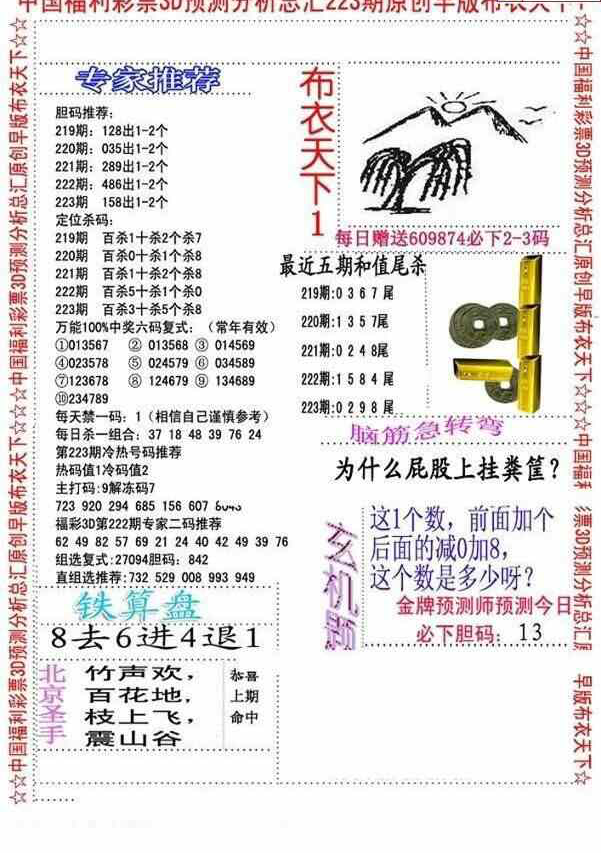 中国福利彩票3D预测分析总汇223期原创早版布衣天下1
☆☆中国福利彩票3D预测分析总汇原创早版布衣天下☆☆中国福利彩票3D预测分析总汇原创早版布衣天下☆☆
专家推荐
胆码推荐:
219期: 128出1-2个
220期: 035出1-2个
221期: 289出1-2个
222期: 486出1-2个
223期  158出1-2个
定位杀码:
219期  百杀1十杀2个杀7
220期  百杀0十杀1个杀8
221期  百杀1十杀2个杀8
222期  百杀5十杀1个杀0
223期  百杀3十杀5个杀8
万能100%中奖六码复式: (常年有效)
①013567  ② 013568 ③ 014569
④023578  ⑤ 024579 ⑥ 034589
⑦123678  ⑧ 124679 ⑨ 134689
⑩234789
每天禁一码: 1 (相信自己谨慎参考)
每日杀一组合: 37 18 48 39 76 24
第223期冷热号码推荐
热码值1冷码值2
主打码:9解冻码7
723 920 294 685 156 607
福彩3D第222期专家二码推荐
62 49 82 57 69 21 24 40 42 49 39 76
组选复式:27094胆码: 842
直组选推荐:732 529 008 993 949
铁算盘
8去6进4退1
北京圣手
竹声欢,
百花地,
枝上飞,
震山谷
恭喜
上期
命中
布衣天下1
每日赠送609874必下2-3码
最近五期和值尾杀
219期:0 3 6 7 尾
220期:1 3 5 7尾
221期:0 2 4 8尾
222期:1 5 8 4 尾
223期:0 2 9 8 尾
脑筋急转弯
为什么屁股上挂粪筐?
玄机题
这1个数, 前面加个
后面的减0加8,
这个数是多少呀?
金牌预测师预测今日
必下胆码: 13
☆☆中国福利彩票3D预测分析总汇原创早版布衣天下☆☆中国福利
彩票3D预测分析总汇原
早版布衣天下☆